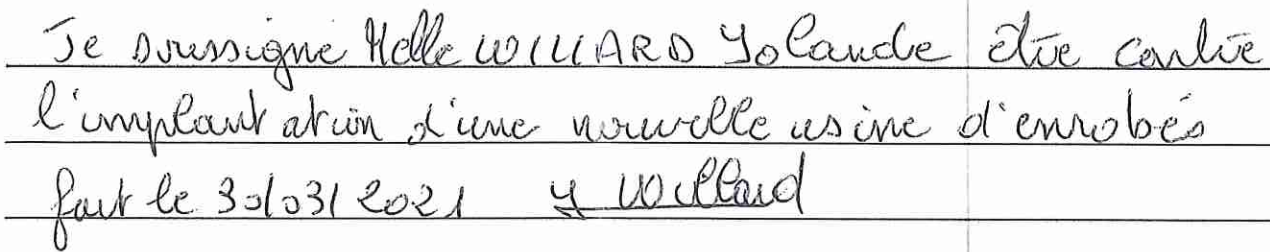 Je soussigne Melle WILLARD Yolande être contre
l'implantation d'une nouvelle usine d'enrobés
fait le 30/03/2021 Y Willard